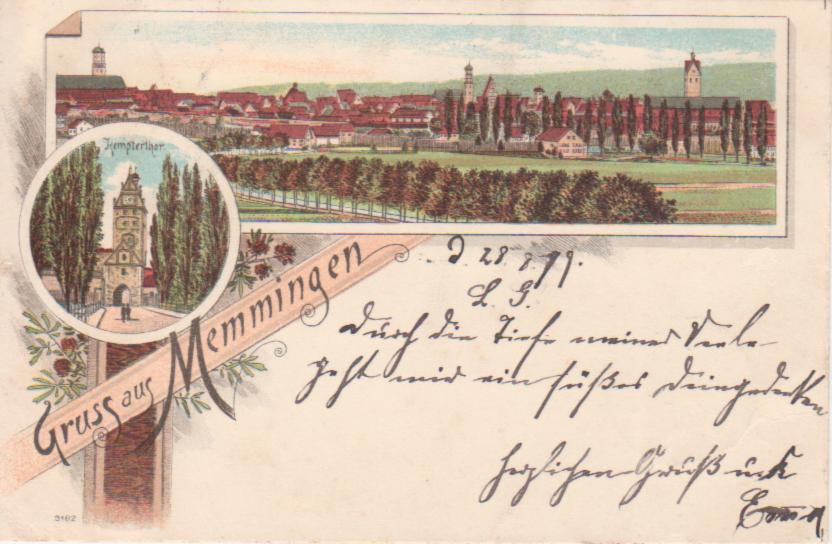 Kempterthor.
Gruss aus Memmingen
d 28.8.99.
L. G.
Durch die Tiefe meiner Seele
geht mir ein süßes Deingedenken
herzlichen Gruß u. K
3162